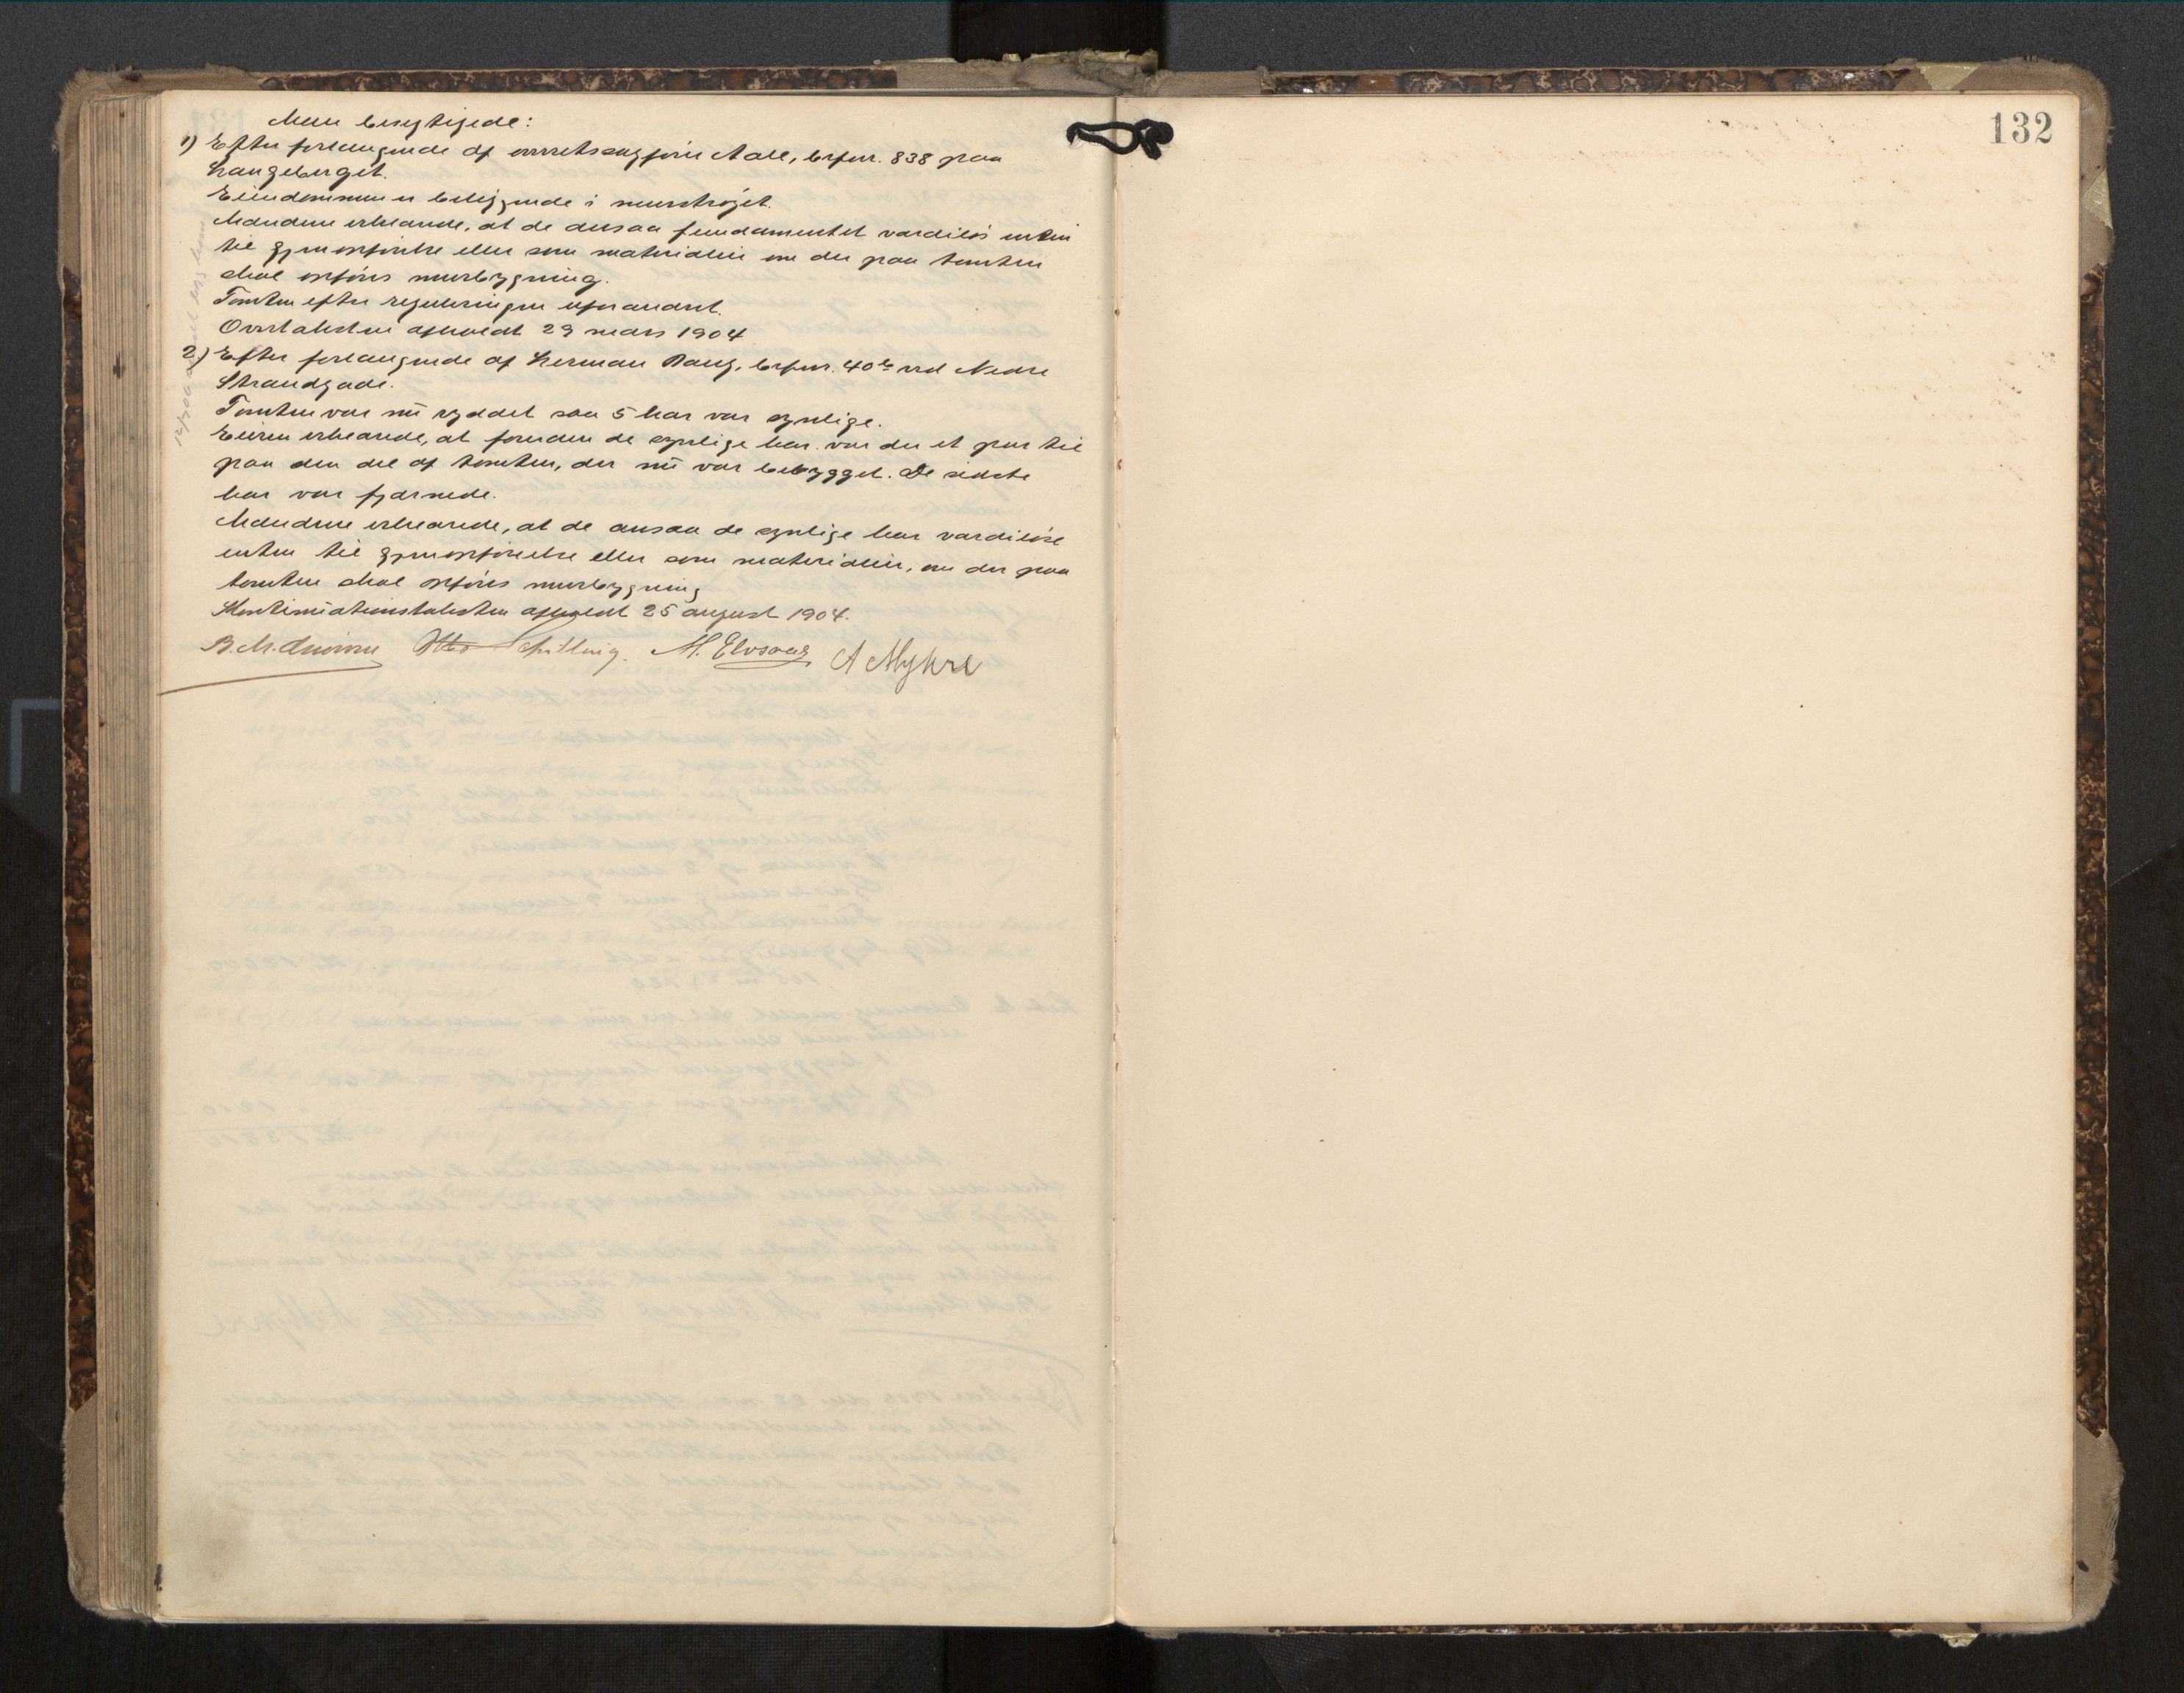 Man besigtigede:
1) Efter forlangende af overretssagfører Aall, brfnr. 838 paa
Langeberget.
Eiendommen er beliggende i murstrøget.
Mændene erklærede, at de ansaa fundamentet værdiløst enten
til gjenopførelse eller som materialier om der paa tomten
skal opføres murbygning.
Tomten efter reguleringen uforandret.
Overtaksten afholdt 29 mars 1904
2.) Efter forlangende af Herman Bang, brfnr. 40 ved Nedre
Strandgade.
Tomten var nu ryddet saa 5 kar var synlige.
Eieren erklærede, at foruden de synlige kar var der et par til
paa den del af tomten, der nu var bebygget. De sidste
kar var fjærnede.
Mændene erklærede, at de ansaa de synlige kar værdiløse
enten til gjenopførelse eller som materialier, om der paa
tomten skal opføres murbygning
Kontinuationstaksten afholdt 25 august 1904.
Otto Schilling. M. Elvsaas A Myhre
132